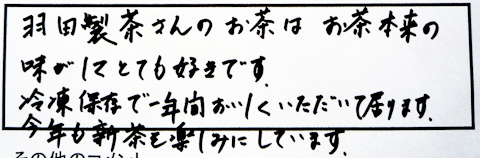 羽田製茶さんのお茶は お茶本来の
味がしてとても好きです。
冷凍保存で一年間おいしくいただいて居ります。
今年も新茶を楽しみにしています。
その他のコメント